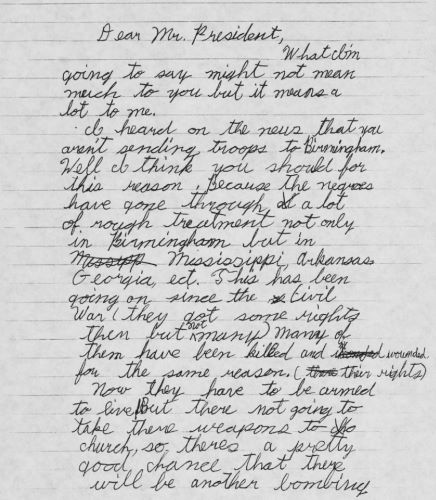 Dear Mr. President,
What I'm
going to say might not mean
much to you but it means a
lot to me.
I heard on the news that you
aren't sending troops to Birmingham.
Well I think you should for
this reason, Because the negroes
have gone through a lot
of rough treatment not only
in Birmingham but in
Mississipp Mississippi, Arkansas
Georgia, ect. This has been
going on since the Civil
War (they got some rights
then but not many) Many of
them have been killed and wounded
for the same reason. (their rights)
Now they have to be armed
to live. But there not going to
take there weapons to
church, so, theres a pretty
good chance that there
will be another bombing